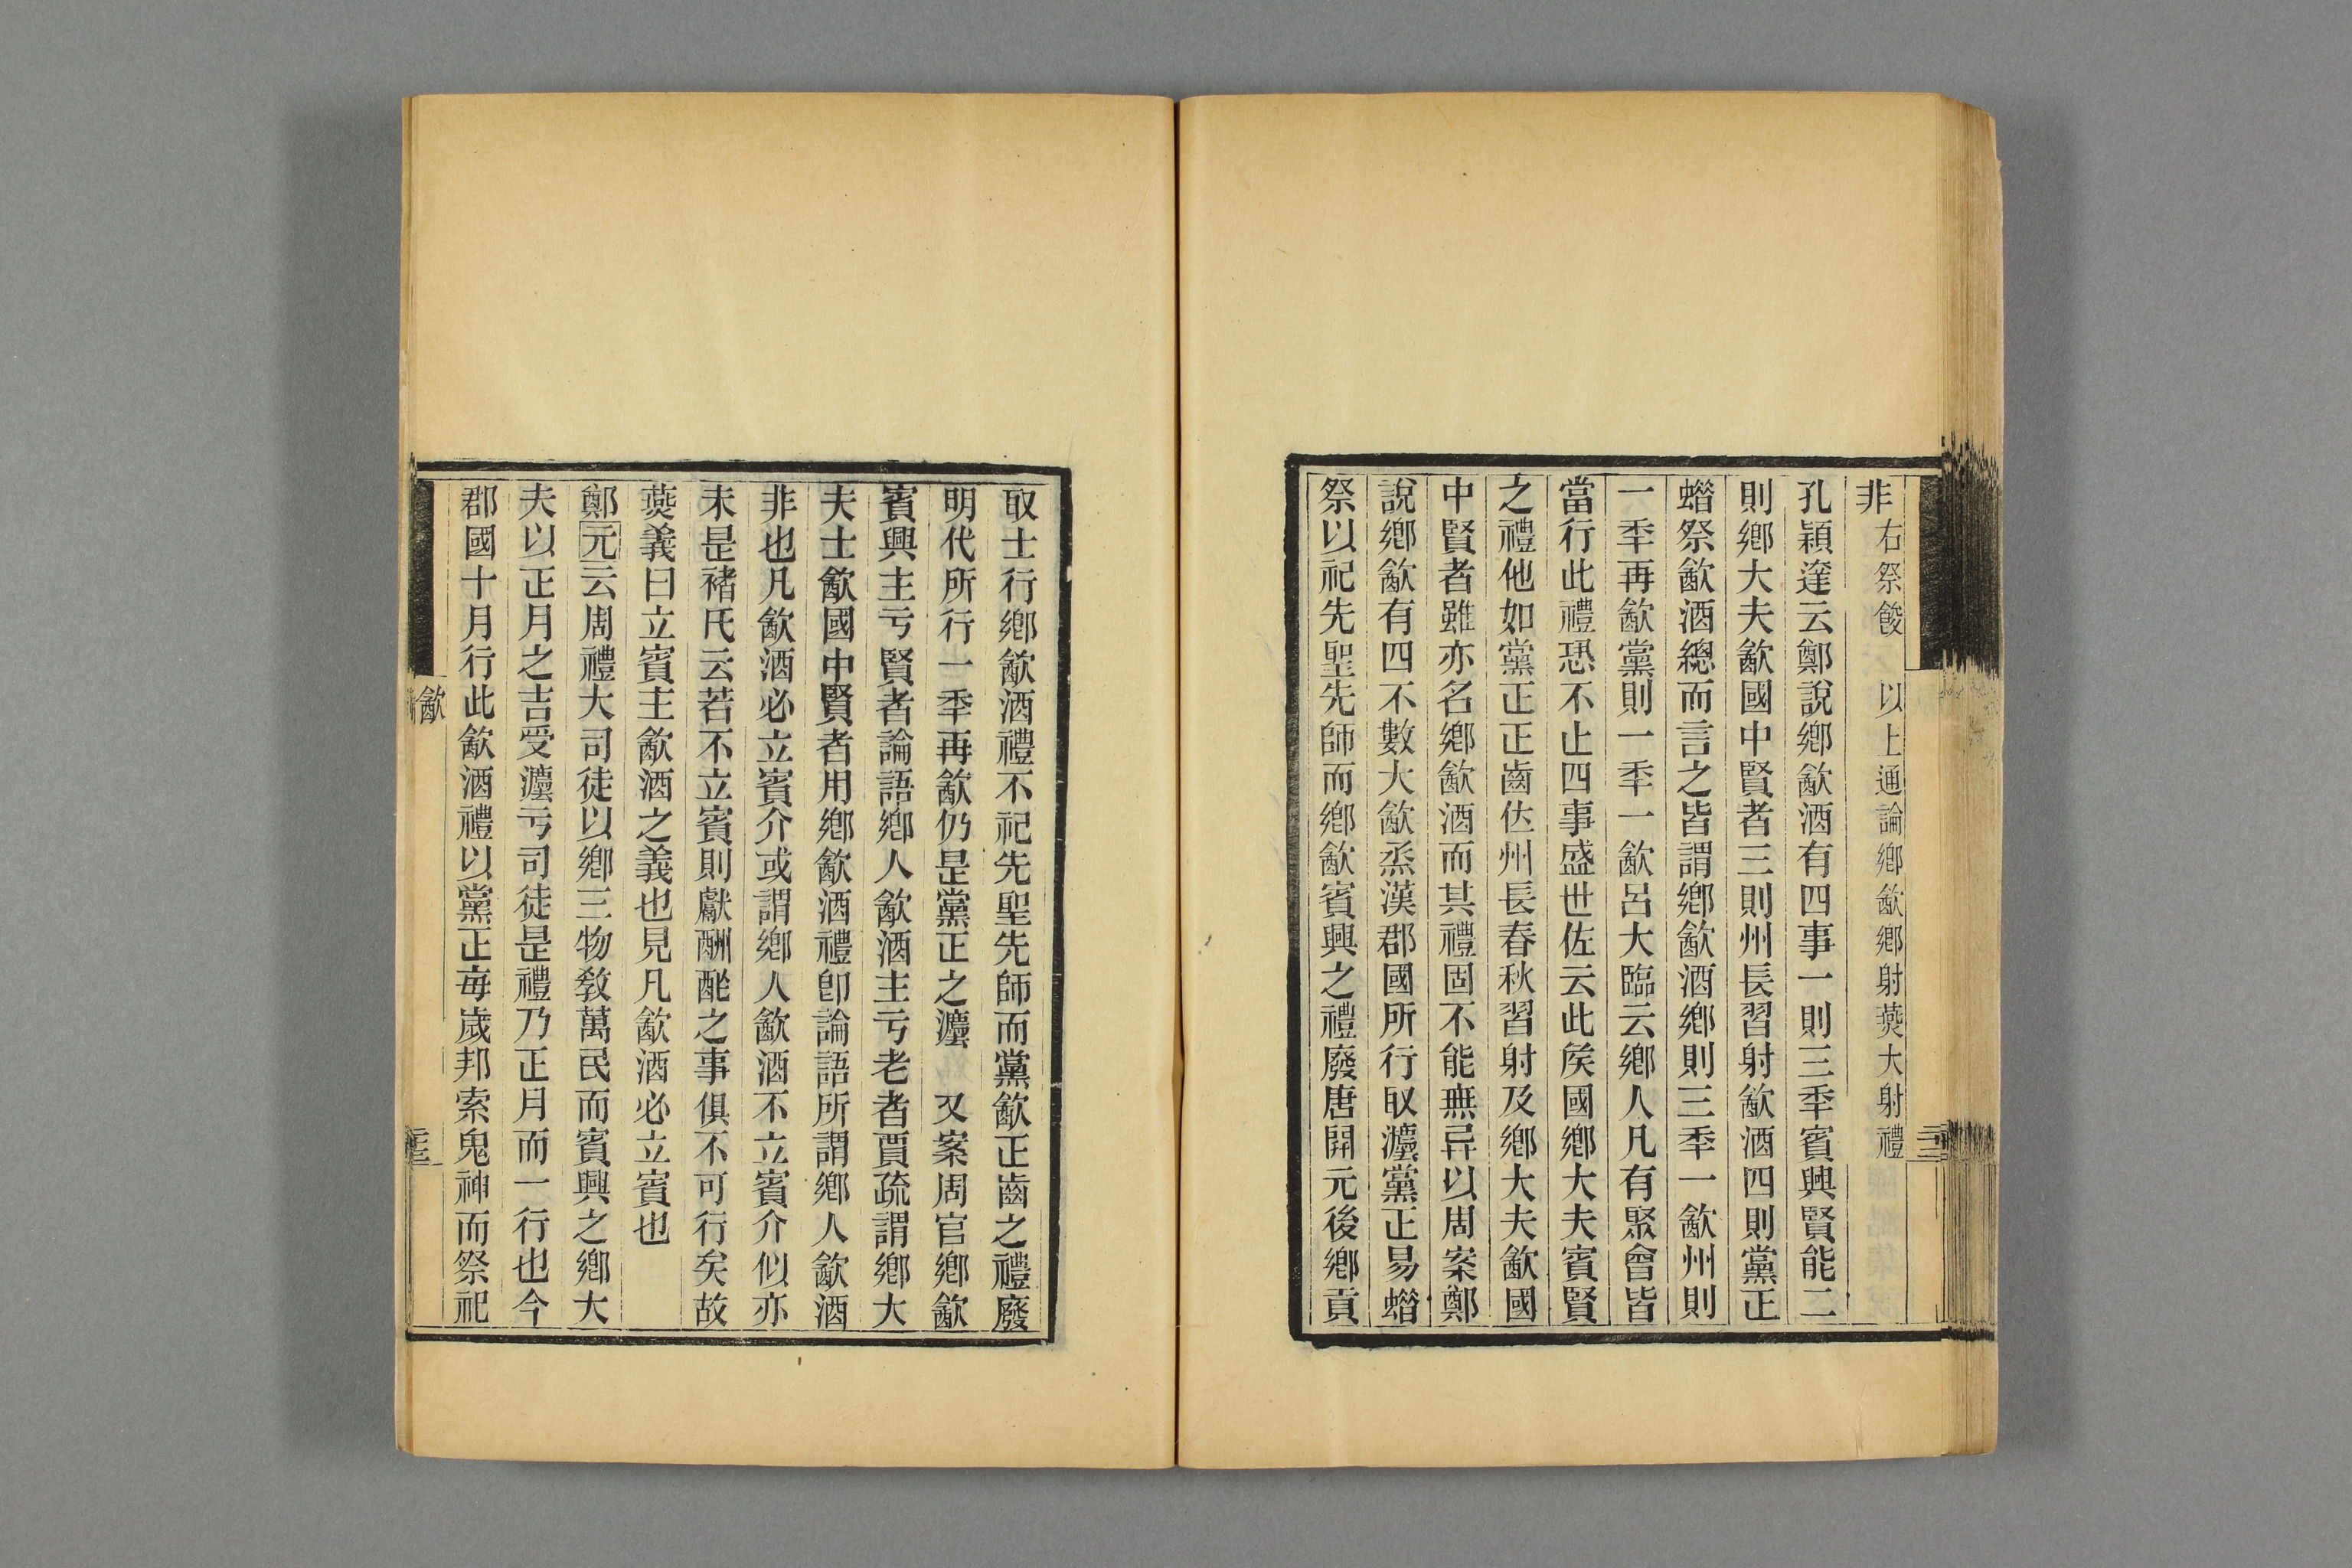 非右祭餕　以上通論鄉歈鄉射䜩大射禮
孔穎達云鄭說鄉歈酒有四事一則三秊賓興賢能二
則鄉大夫歈國中賢者三則州長習射歈酒四則黨正
蜡祭歈酒總而言之皆謂鄉歈酒鄉則三秊一歈州則
一秊再歈黨則一秊一歈呂大臨云鄉人凡有聚會皆
當行此禮恐不止四事盛世佐云此矦國鄉大夫賓賢
之禮他如黨正正齒位州長春秋習射及鄉大夫歈國
中賢者雖亦名鄉歈酒而其禮固不能無异以周案鄭
說鄉歈有四不數大歈烝漢郡國所行取灋黨正昜蜡
祭以祀先聖先師而鄉歈賓興之禮廢唐開元後鄉貢
取士行鄉歈酒禮不祀先聖先師而黨歈正齒之禮廢
明代所行一秊再歈仍是黨正之灋　又案周官鄉歈
賓興主亏賢者論語鄉人歈酒主亏老者賈疏謂鄉大
夫士歈國中賢者用鄉歈酒禮卽論語所謂鄉人歈酒
非也凡歈酒必立賓介或謂鄉人歈酒不立賓介似亦
未是褚氏云若不立賓則獻酬酢之事俱不可行矣故
燕義曰立賓主歈酒之義也見凡歈酒必立賓也
鄭元云周禮大司徒以鄉三物敎萬民而賓興之鄉大
夫以正月之吉受灋亏司徒是禮乃正月而一行也今
郡國十月行此歈酒禮以黨正每歲邦索鬼神而祭祀
歈